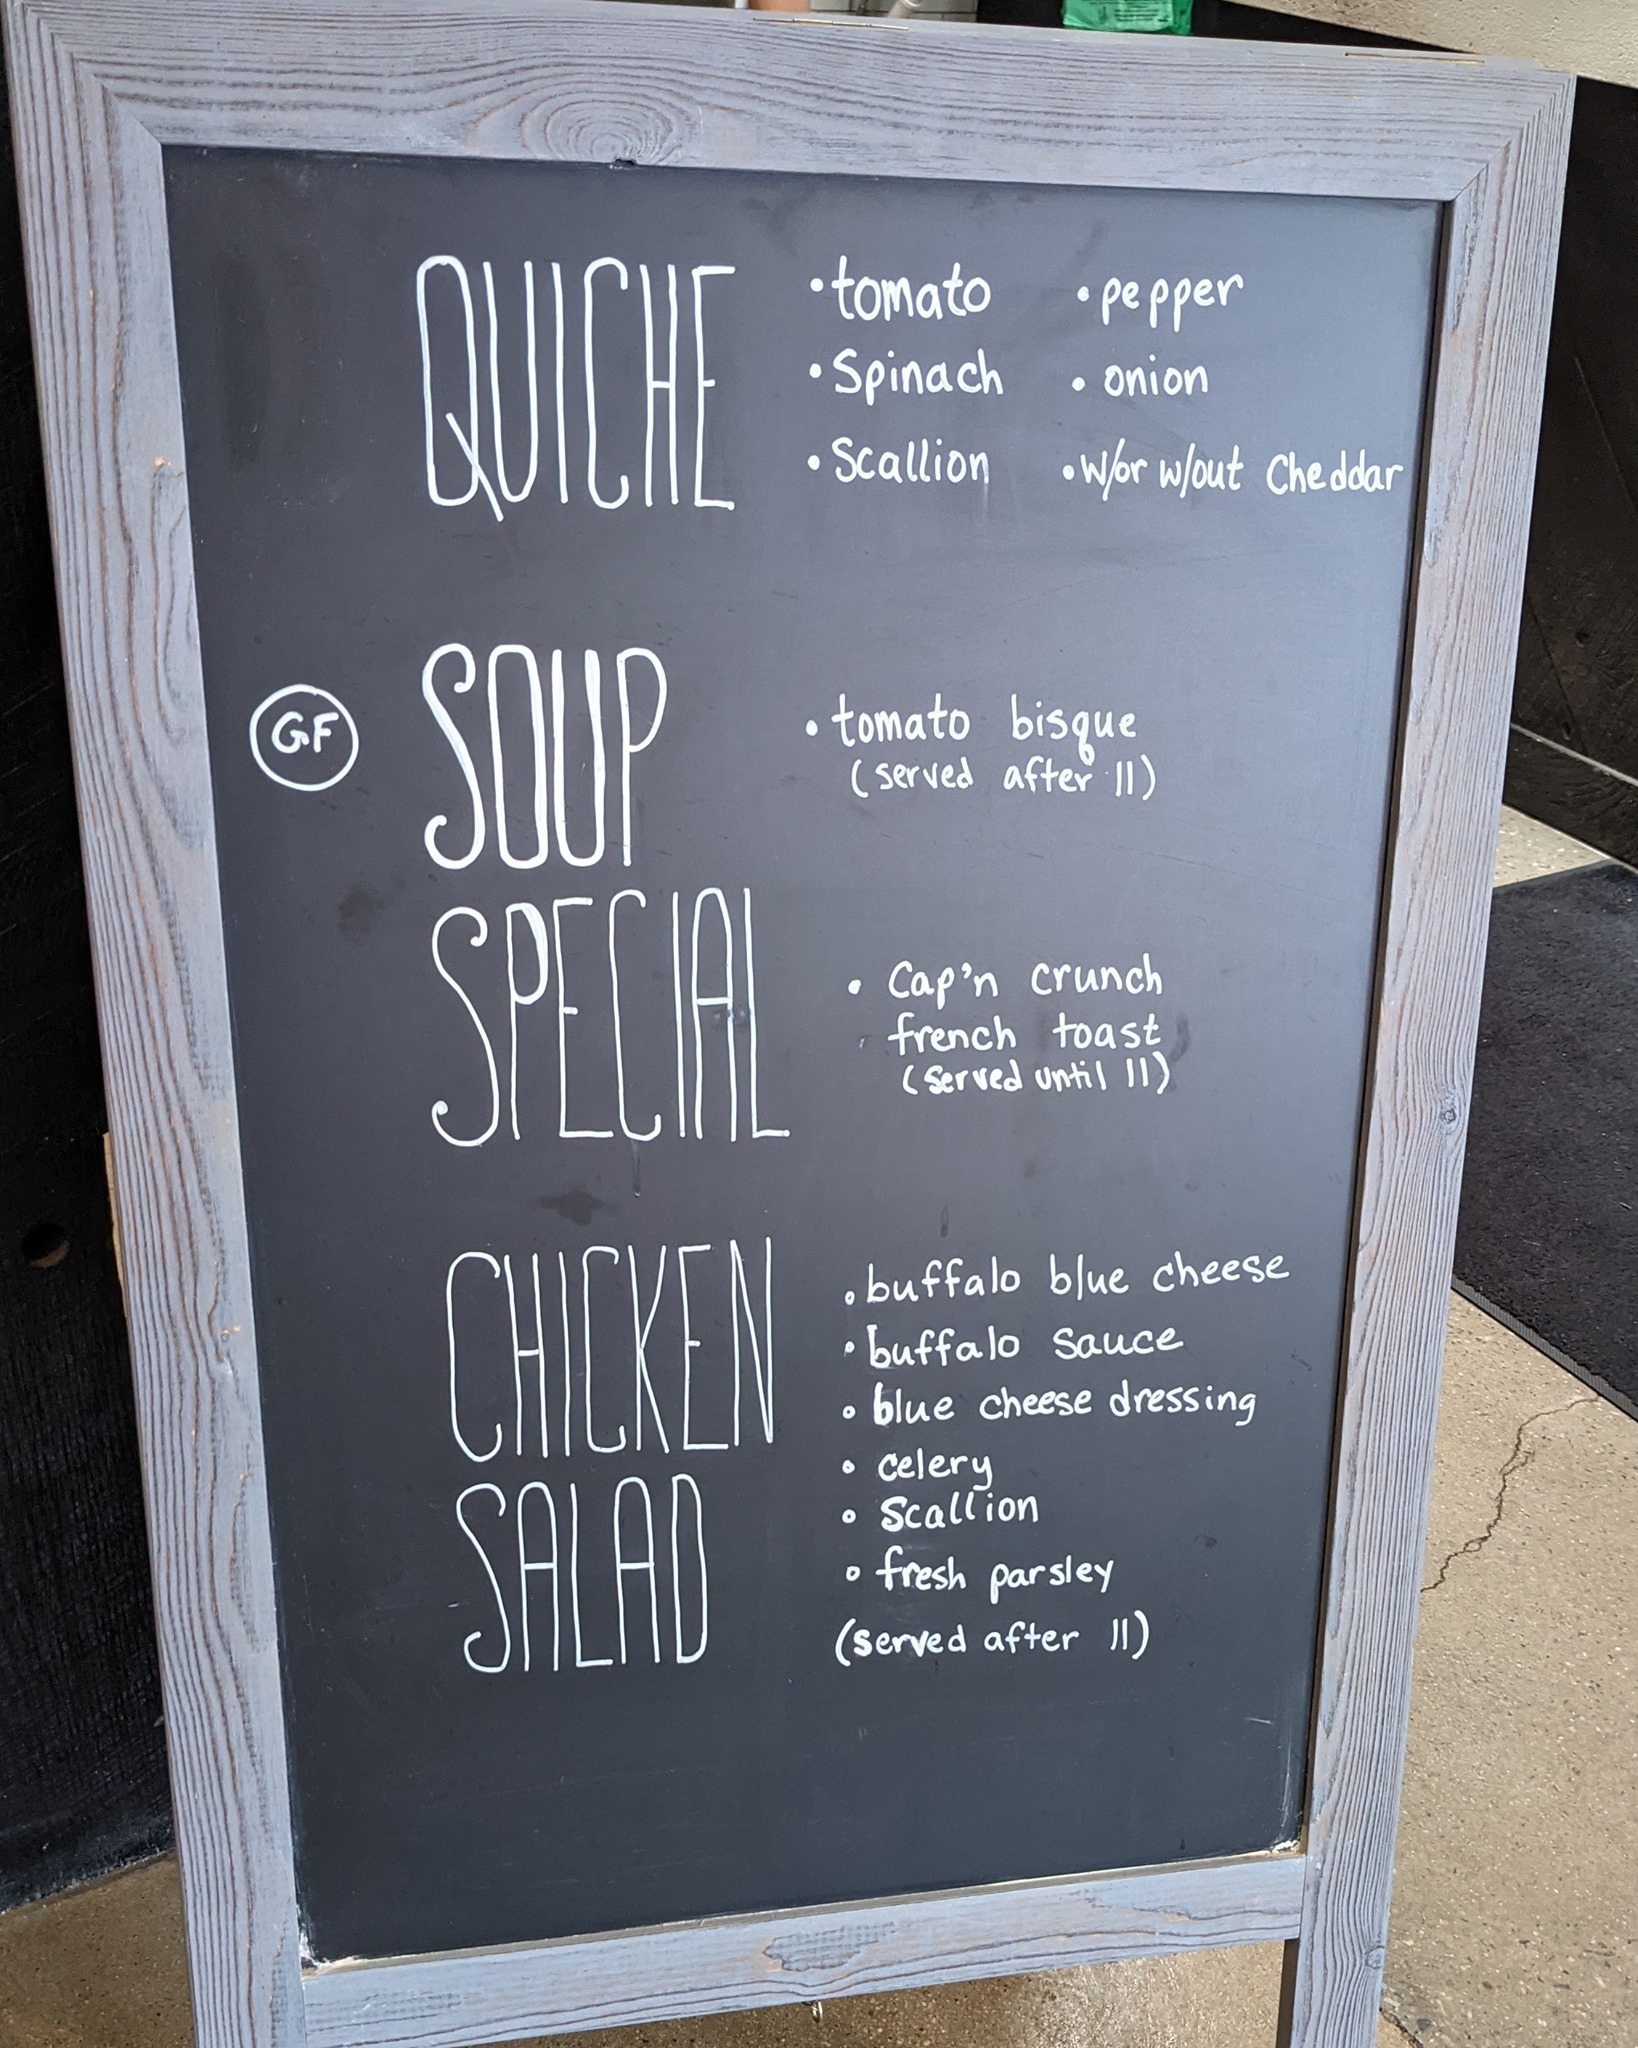 QUICHE
•tomato •pepper
•Spinach • onion
•Scallion •w/or w/out Cheddar
GF SOUP
• tomato bisque
(served after 11)
SPECIAL
• Cap'n crunch
french toast
(served until 11)
CHICKEN
SALAD
• buffalo blue cheese
• buffalo sauce
• blue cheese dressing
• celery
• scallion
• fresh parsley
(served after 11)